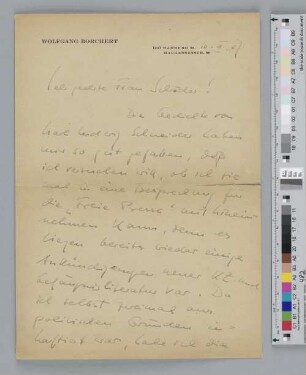 WOLFGANG BORCHERT
HAMBURG
Frau Schröder!
die Gedichte von
Karl Ludwig Schneider haben
mir so gut gefallen, daß
ich versuchen will, ob ich sie
mal in eine Besprechung für
die "Freie Presse" mit hinein
nehmen kann, denn es
liegen bereits wieder einige
Ankündigungen neuer KZ und
Gefängnisliteratur vor. Da
ich selbst zweimal aus
politischen Gründen in-
haftiert war, habe ich die